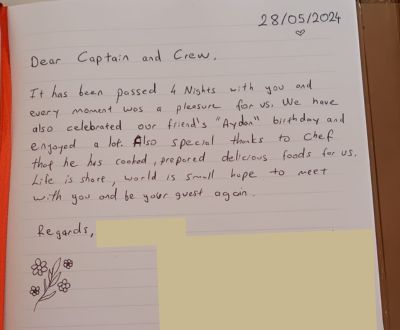 28/05/2024
Dear Captain and Crew,
It has been passed 4 Nights with you and
every moment was a pleasure for us. We have
also celebrated our friend's "Aydan" birthday and
engoyed a lot. Also special thanks to chef
that he has cooked, prepared delicious foods for us.
Life is short, world is small hope to meet
with you and be your guest again.
Regards,